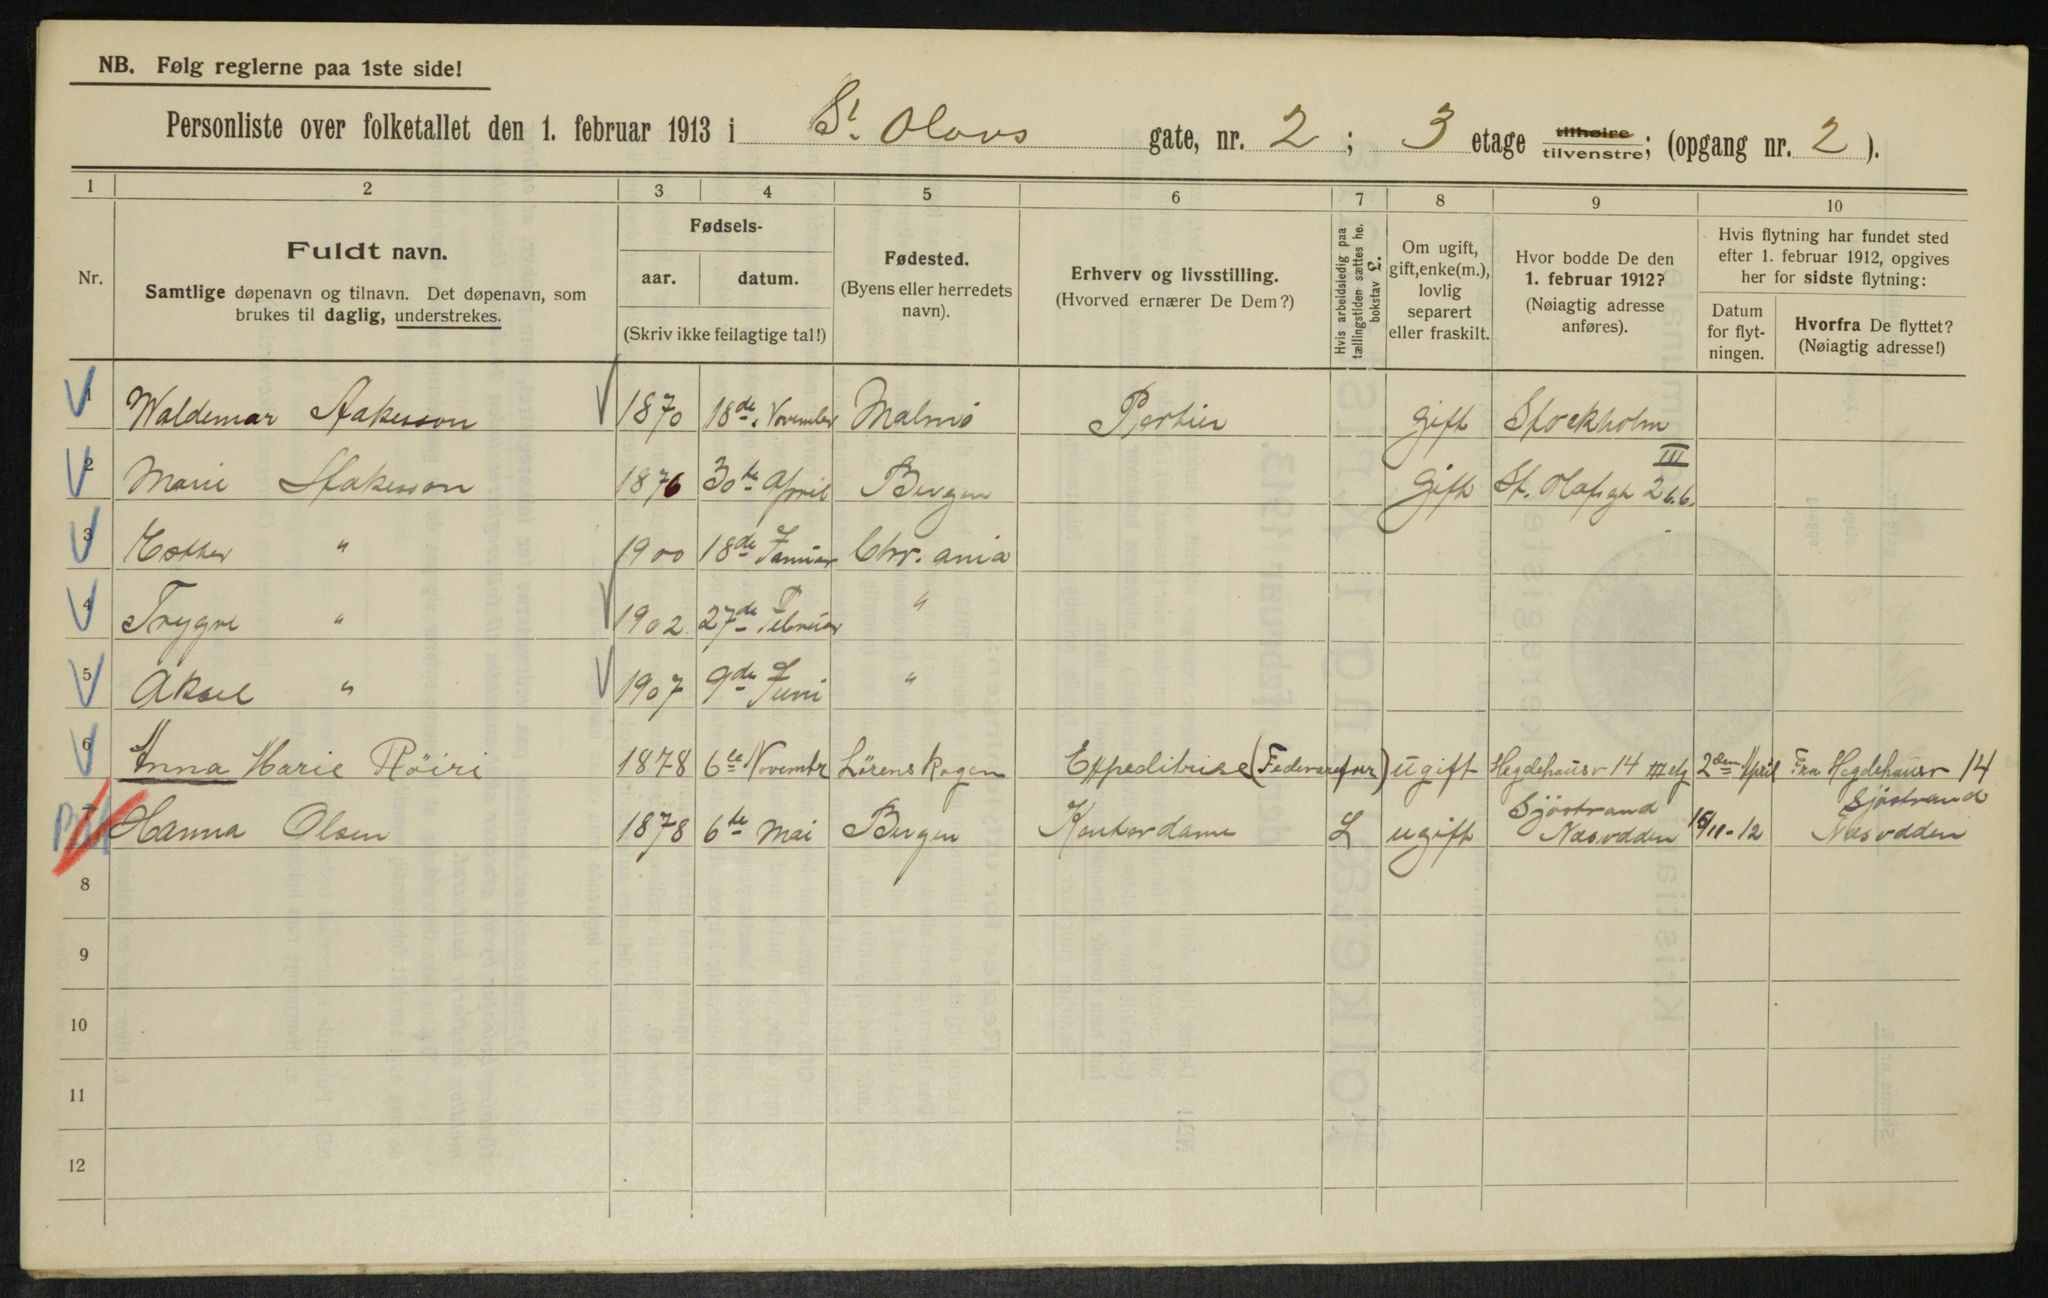 NB. Følg reglerne paa 1ste side!
Personliste over folketallet den 1. februar 1913 i St. Olavs gate, nr. 2; 3 etage tilhøire tilvenstre; (opgang nr. 2).
1 2 3 4 5 6 7 8 9 10
Nr.
Fuldt navn.
Samtlige døpenavn og tilnavn. Det døpenavn, som
brukes til daglig, understrekes.
Fødsels-
aar. datum.
(Skriv ikke feilagtige tal!)
Fødested.
(Byens eller herredets
navn).
Erhverv og livsstilling.
(Hvorved ernærer De Dem?)
Hvis arbeidsledig paa
tællingstiden sættes he.
bokstav L.
Om ugift,
gift, enke(m.),
lovlig
separert
eller fraskilt.
Hvor bodde De den
1. februar 1912?
(Nøiagtig adresse
anføres).
Hvis flytning har fundet sted
efter 1. februar 1912, opgives
her for sidste flytning:
Datum
for flyt-
ningen.
Hvorfra De flyttet?
(Nøiagtig adresse!)
1 Waldemar Aakesson 1870 18de November Malmö Portier gift Stockholm
2 Marie Aakesson 1876 30te April Bergen gift St. Olafsgt 2 b.b. III
3 Esther " 1900 18de Januar Chr. ania
4 Trygve " 1902 27de Februar "
5 Aksel " 1907 9de Juni "
6 Anna Marie Röiri 1878 6te Novembr Lörenskogen Expeditrise ugift Hegdehausv 14 III etg 2den April Fra Hegdehausv 14
7 Hanna Olsen 1878 6te Mai Bergen Kontordame L ugift Sjöstrand Næsodden 15/11-12 Sjöstrand Næsodden
8
9
10
11
12